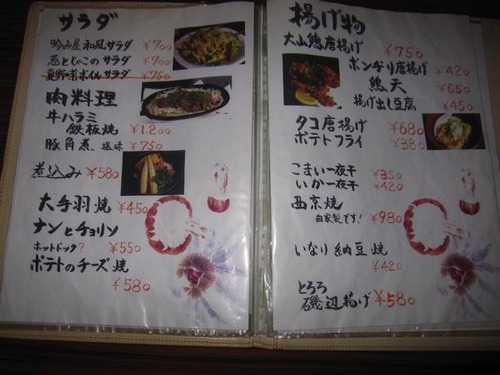 サラダ
吟み屋和風サラダ ¥700
¥700
夏野菜ボイルサラダ ¥750
肉料理
牛ハラミ
鉄板焼 ¥1.200
豚角煮 塩味 ¥750
煮込み ¥580
大手羽焼 ¥450
ナンとチョリソ
ホットドック? ¥550
ポテトのチーズ焼
¥580
揚げ物
大山鶏唐揚げ
¥750
ボンヂリ唐揚げ ¥420
鶏天 ¥650
揚げ出し豆腐 ¥450
タコ唐揚げ ¥680
ポテトフライ ¥380
こまい一夜干 ¥350
いか一夜干 ¥420
西京焼
自家製です! ¥980
いなり納豆焼
¥420
とろろ
磯辺揚げ ¥580